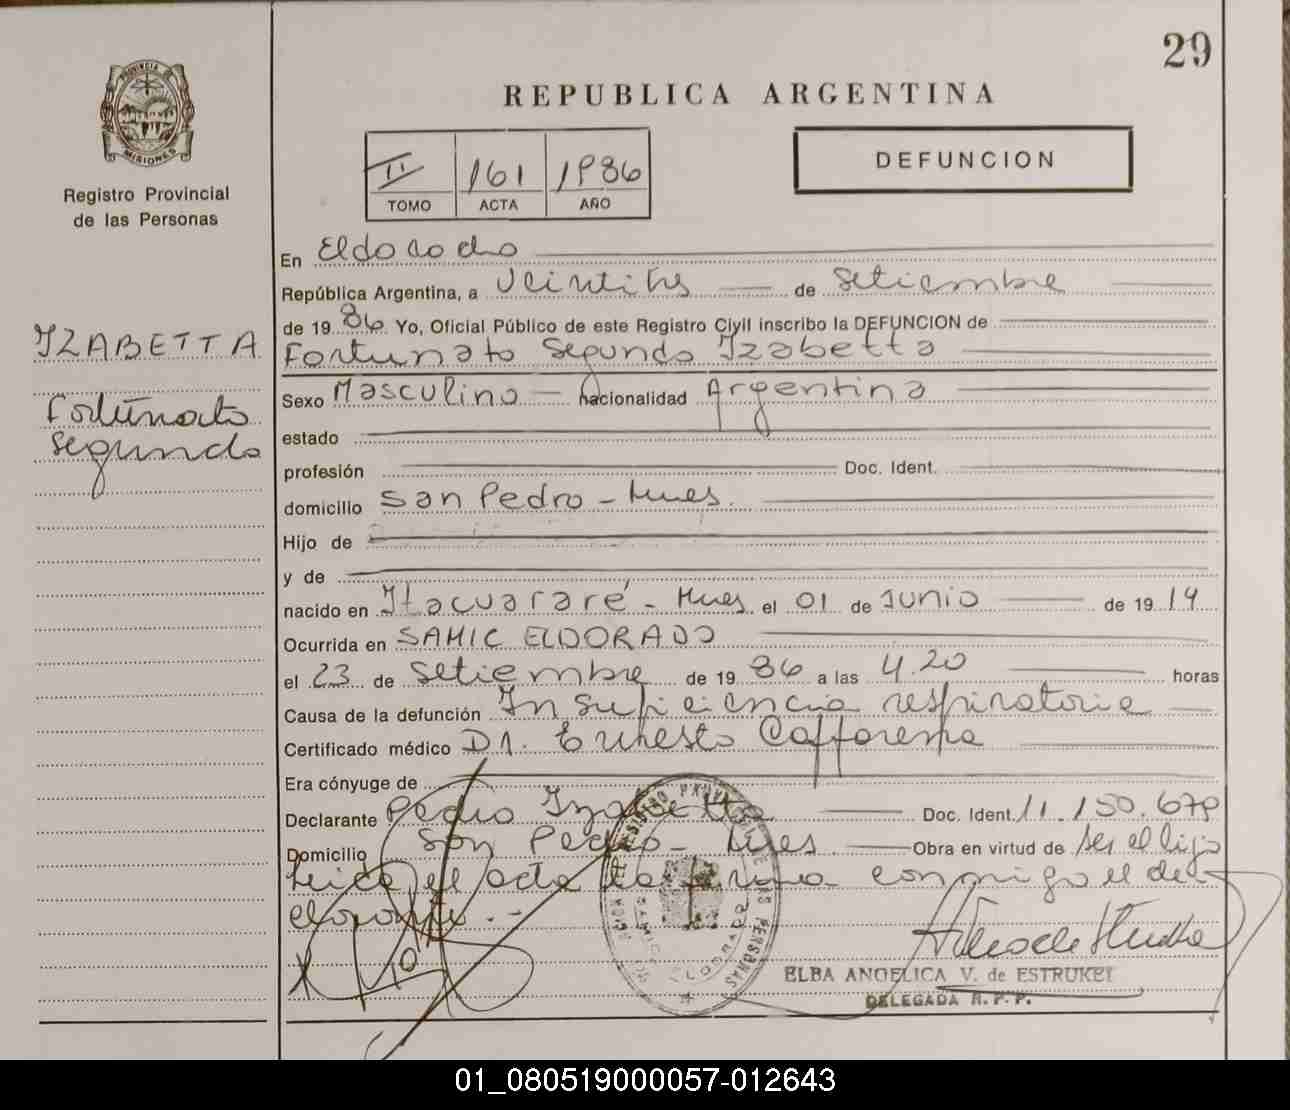 29
REPUBLICA ARGENTINA
PROVINCIA
MISIONES
Registro Provincial
de las Personas
II 161 1986
TOMO ACTA AÑO
DEFUNCION
IZABETTA
Fortunato
Segundo
En Eldorado
República Argentina, a veintitrés de Setiembre
de 1986 Yo, Oficial Público de este Registro Civil inscribo la DEFUNCION de
Fortunato Segundo Izabetta
Sexo Masculino nacionalidad Argentina
estado
profesión Doc. Ident.
domicilio San Pedro - Mnes.
Hijo de
y de
nacido en Itacuararé - Mnes el 01 de Junio de 1919
Ocurrida en SAMIC ELDORADO
el 23 de Setiembre de 1986 a las 4.20 horas
Causa de la defunción Insuficiencia respiratoria
Certificado médico Dr. Ernesto
Era cónyuge de
Declarante Pedro Izabetta Doc. Ident. 11.150.679
Domicilio San Pedro - Mnes Obra en virtud de ser el hijo
leída el acta la firma conmigo el de-
clarante.-
ELBA ANGELICA V. de ESTRUKEL
DELEGADA R. P. P.
01_080519000057-012643